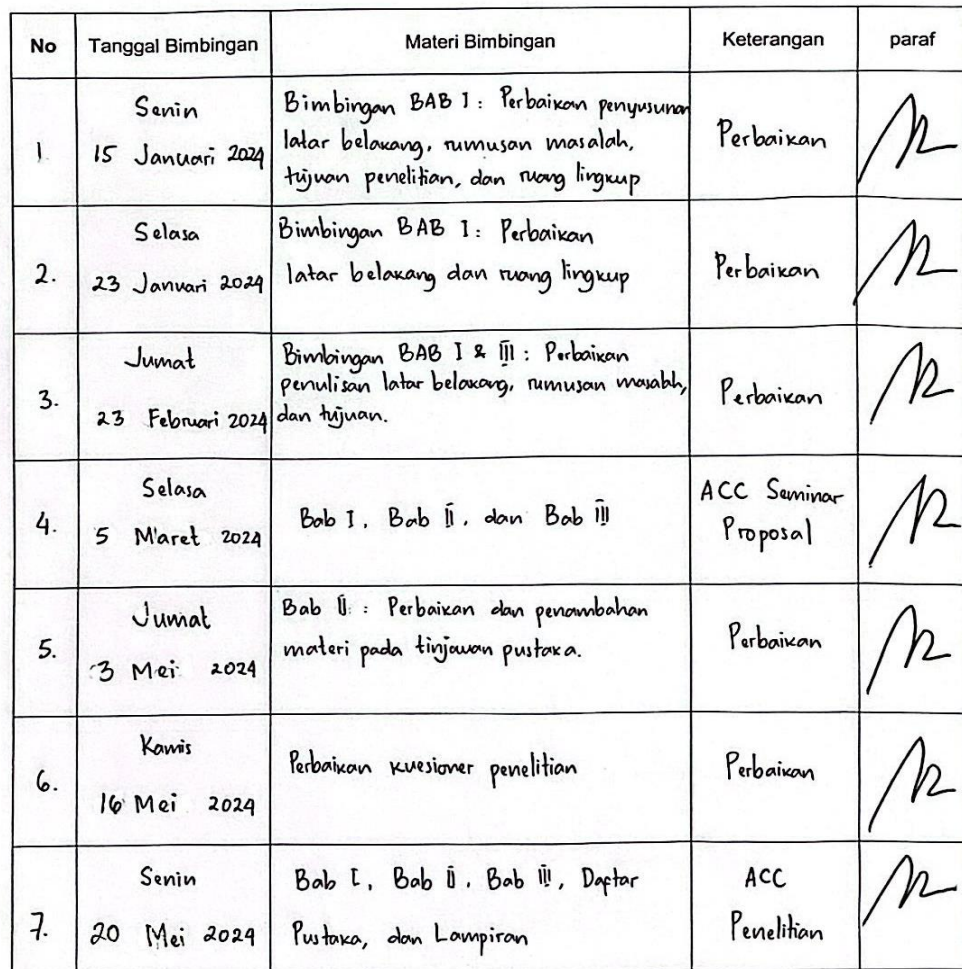 No Tanggal Bimbingan Materi Bimbingan Keterangan paraf
1. Senin
15 Januari 2024
Bimbingan BAB I : Perbaikan penyusunan
latar belakang, rumusan masalah,
tujuan penelitian, dan ruang lingkup
Perbaikan
2. Selasa
23 Januari 2024
Bimbingan BAB I : Perbaikan
latar belakang dan ruang lingkup
Perbaikan
3. Jumat
23 Februari 2024
Bimbingan BAB I & III : Perbaikan
penulisan latar belakang, rumusan masalah,
dan tujuan.
Perbaikan
4. Selasa
5 Maret 2024
Bab I, Bab II, dan Bab III
ACC Seminar
Proposal
5. Jumat
3 Mei 2024
Bab II : Perbaikan dan penambahan
materi pada tinjauan pustaka.
Perbaikan
6. Kamis
16 Mei 2024
Perbaikan kuesioner penelitian
Perbaikan
7. Senin
20 Mei 2024
Bab I, Bab II, Bab III, Daftar
Pustaka, dan Lampiran
ACC
Penelitian